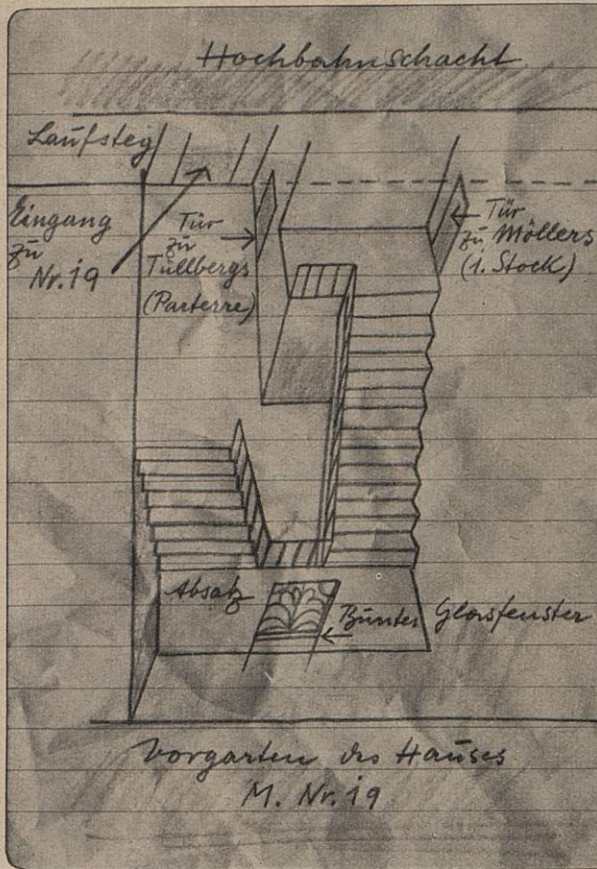 Hochbahnschacht
Laufsteg
Eingang
zu
Nr. 19
Tür
zu
Tüllbergs
(Parterre)
Tür
zu Möllers
(1. Stock)
Absatz
Buntes Glasfenster
Vorgarten des Hauses
M. Nr. 19